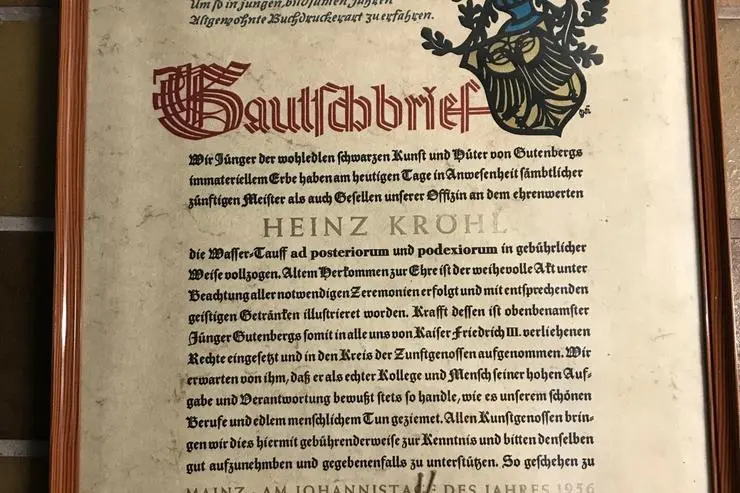 Um so in jungen, bildsamen Jahren
Altgewohnte Buchdruckerart zu erfahren.
Gautschbrief
Wir Jünger der wohledlen schwarzen Kunst und Hüter von Gutenbergs
immateriellem Erbe haben am heutigen Tage in Anwesenheit sämbtlicher
zünftigen Meister als auch Gesellen unserer Offizin an dem ehrenwerten
HEINZ KRÖHL
die Wasser-Tauff ad posteriorum und podexiorum in gebührlicher
Weise vollzogen. Altem Herkommen zur Ehre ist der weihevolle Akt unter
Beachtung aller notwendigen Zeremonien erfolgt und mit entsprechenden
geistigen Getränken illustrieret worden. Krafft dessen ist obenbenamster
Jünger Gutenbergs somit in alle uns von Kaiser Friedrich III. verliehenen
Rechte eingesetzt und in den Kreis der Zunftgenossen aufgenommen. Wir
erwarten von ihm, daß er als echter Kollege und Mensch seiner hohen Auf-
gabe und Verantwortung bewußt stets so handle, wie es unserem schönen
Berufe und edlem menschlichem Tun geziemet. Allen Kunstgenossen brin-
gen wir dies hiermit gebührenderweise zur Kenntnis und bitten denselben
gut aufzunehmben und gegebenenfalls zu unterstützen. So geschehen zu
MAINZ · AM JOHANNISTAGE DES JAHRES 1956